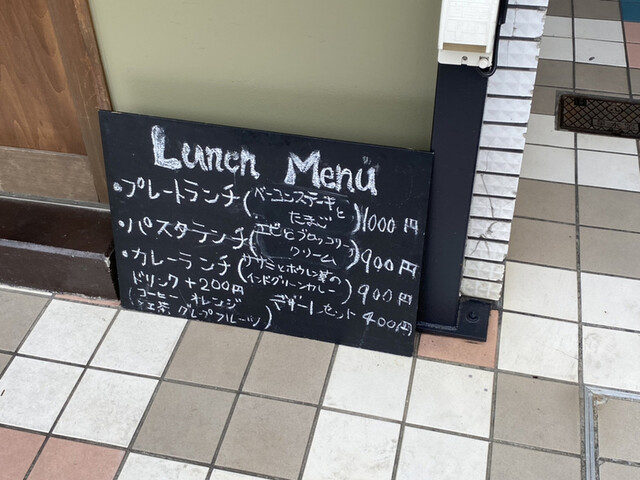 Lunch Menü
・プレートランチ(ベーコンステーキとたまご)1000円
・パスタランチ(エビとブロッコリークリーム)900円
・カレーランチ(ササミとホウレン草のインドグリーンカレー)900円
ドリンク +200円
(コーヒー オレンジ
紅茶 グレープフルーツ)
デザートセット 400円